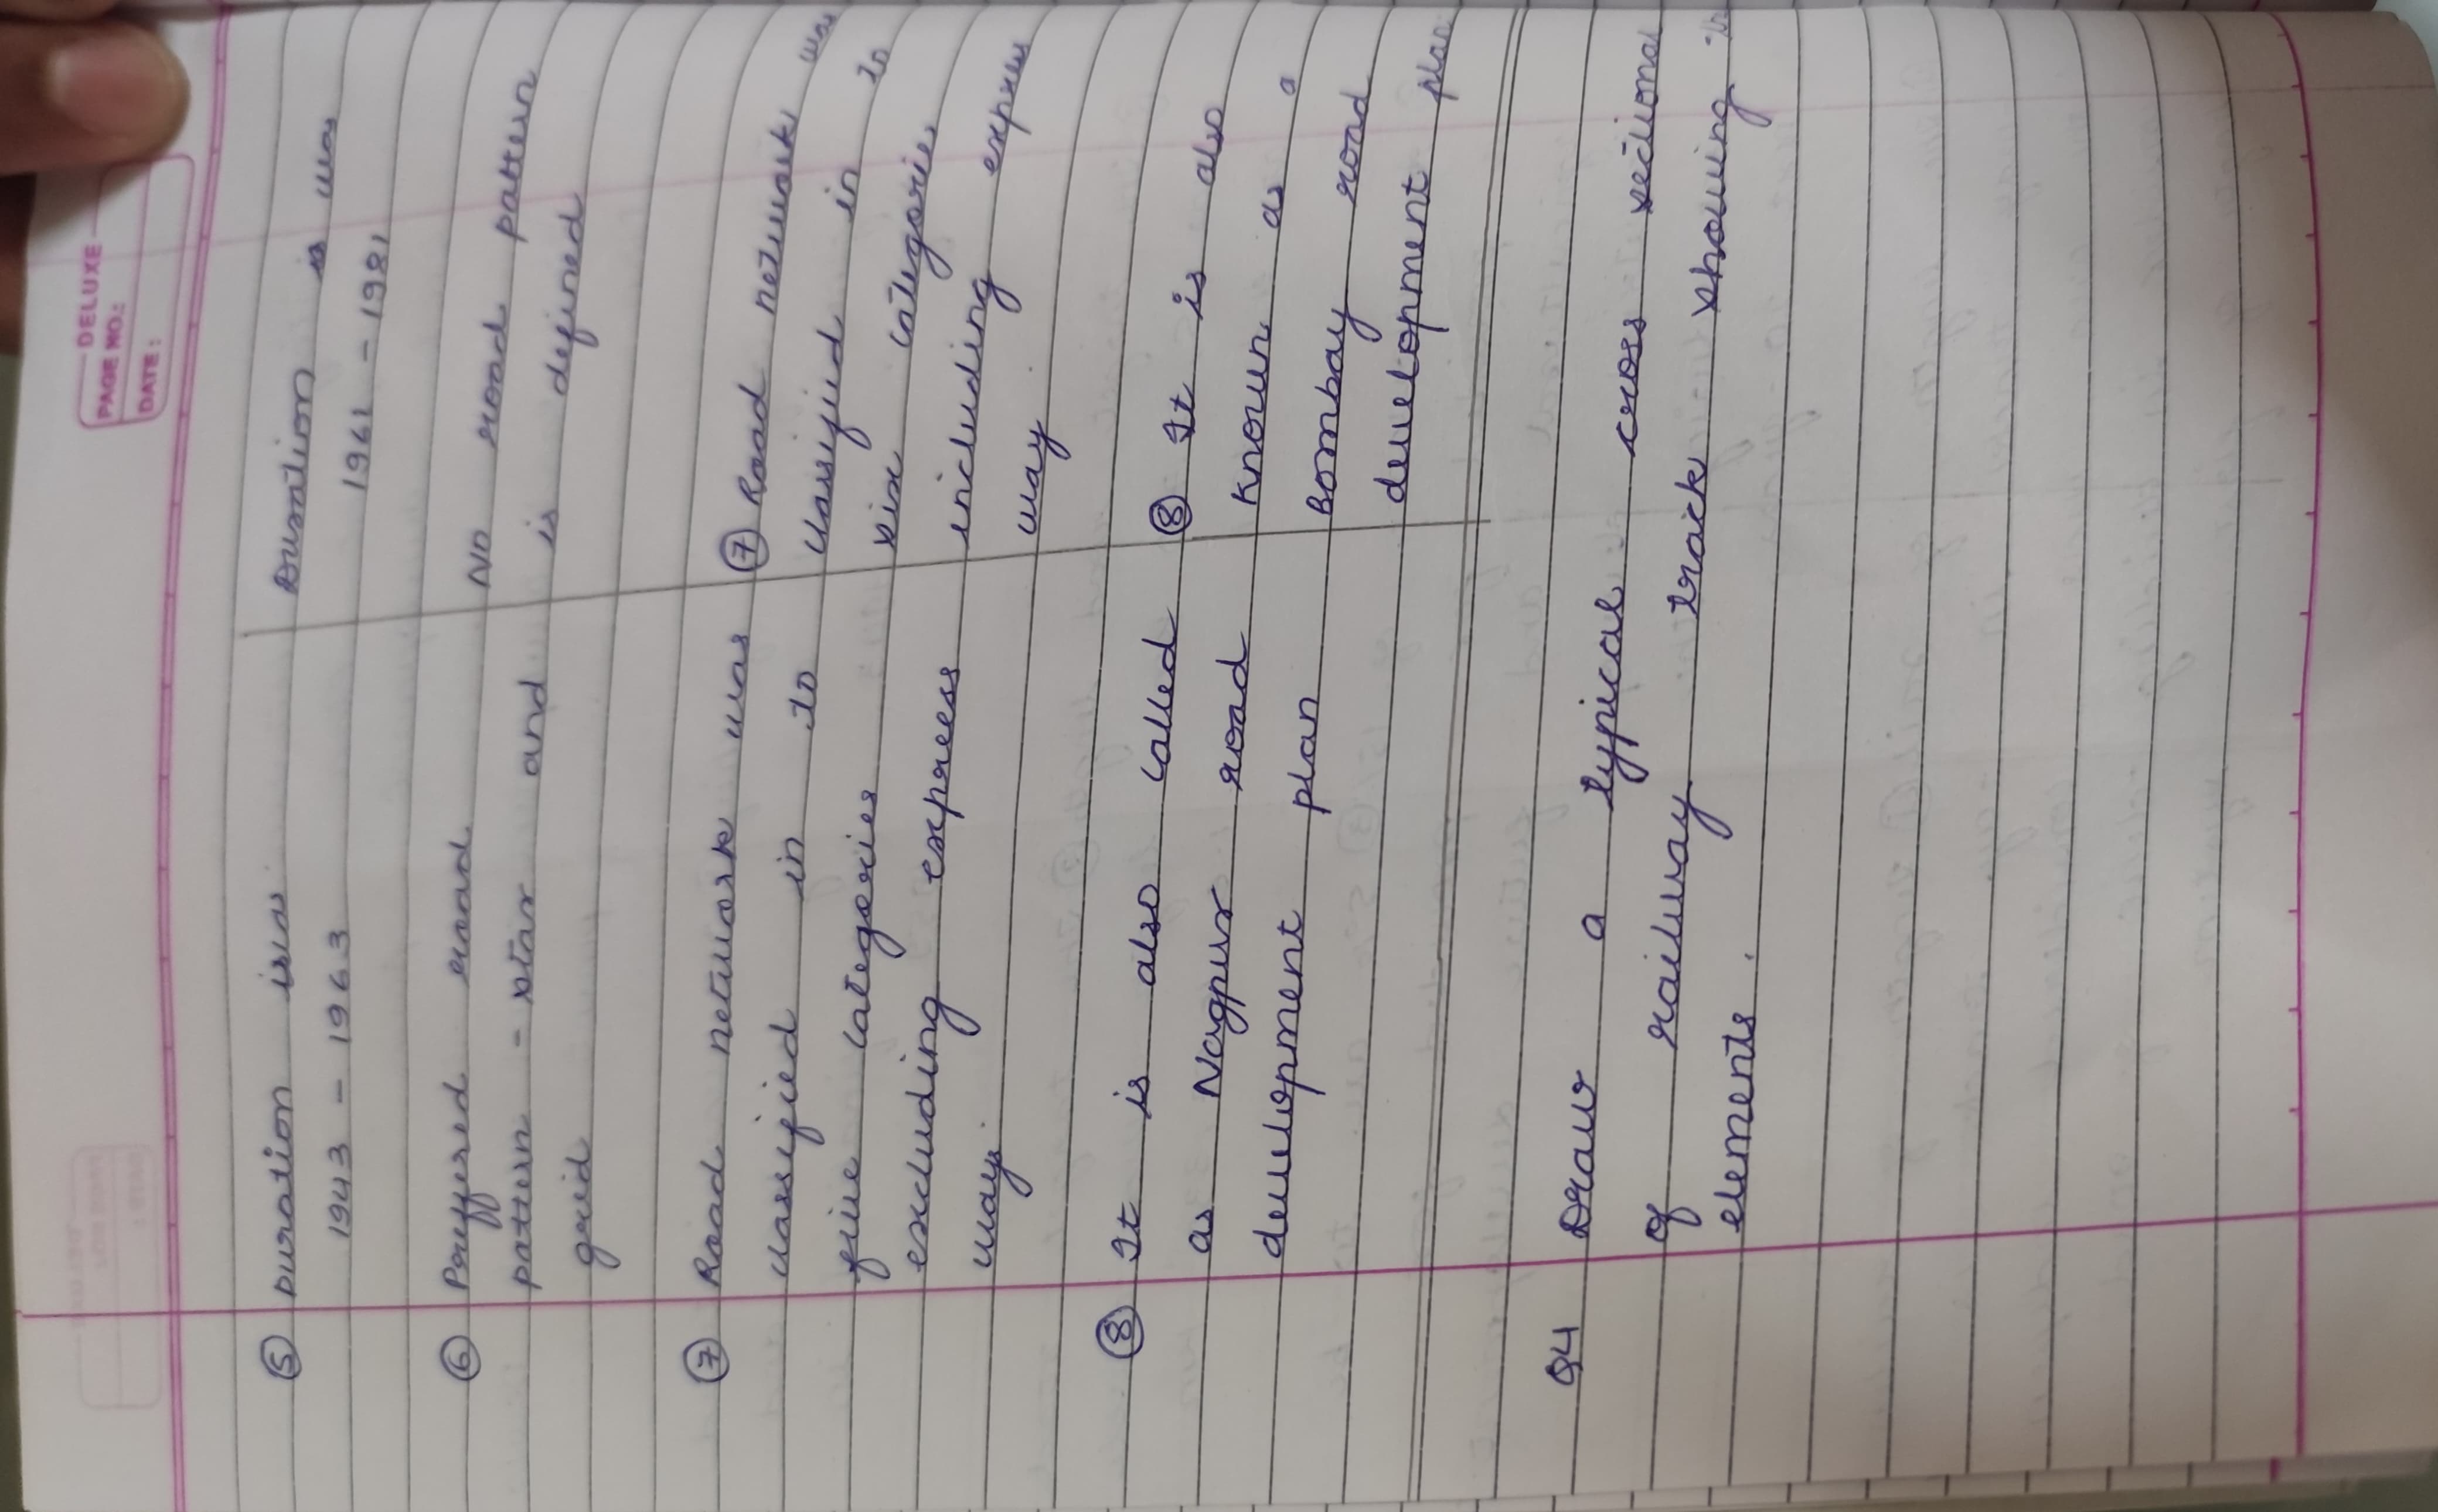 DELUXE
PAGE NO.:
DATE:
⑤ Duration is was
1943 - 1963
Duration is was
1961 - 1981
⑥ Preffered road
pattern - star and
grid
No road pattern
is defined
⑦ Road network was
classified in to
five categories
excluding express
ways
⑦ Road network was
classified in to
six categories
including express
way
⑧ It is also called
as Nagpur road
development plan
⑧ It is also
known as a
Bombay road
development plan
Q4 Draw a typical cross sectional
of railway track showing
elements.